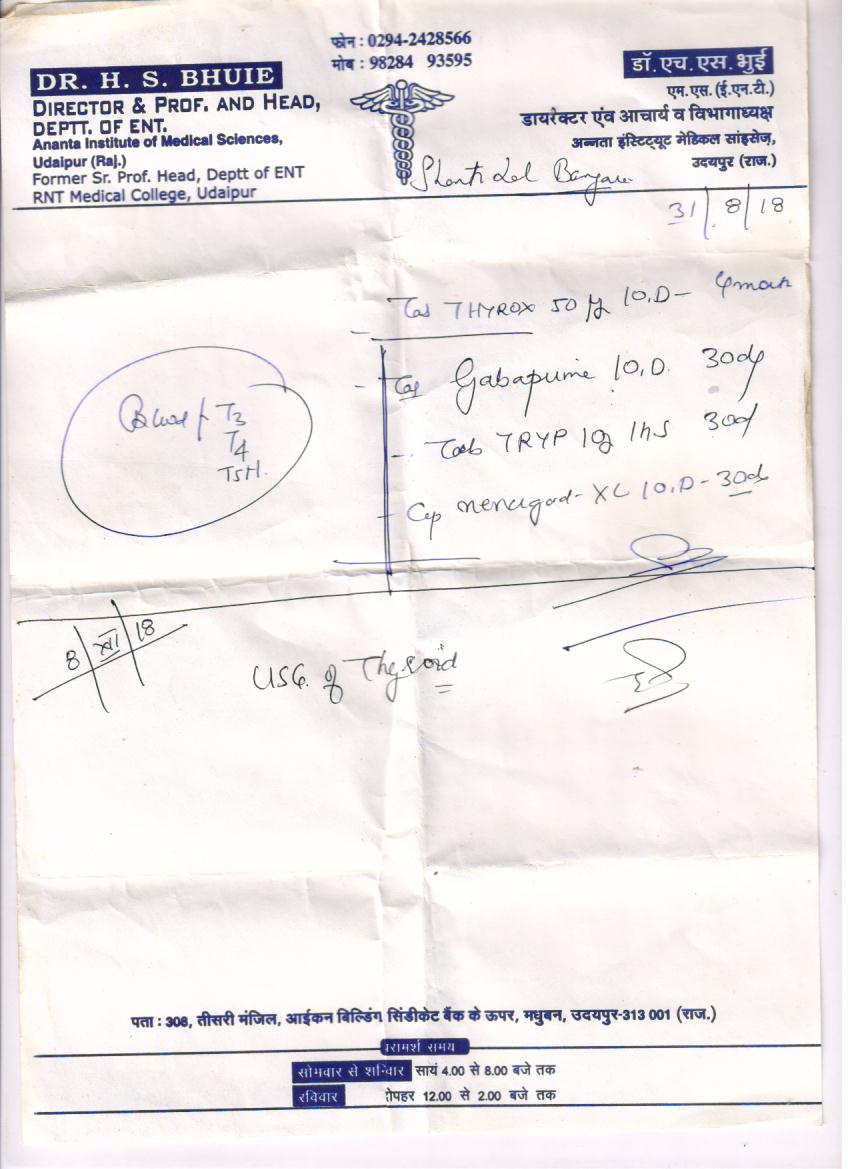 फोन : 0294-2428566
मोब : 98284 93595
DR. H. S. BHUIE
DIRECTOR & PROF. AND HEAD,
DEPTT. OF ENT.
Ananta Institute of Medical Sciences,
Udaipur (Raj.)
Former Sr. Prof. Head, Deptt of ENT
RNT Medical College, Udaipur
डॉ. एच. एस. भुई
एम.एस. (ई.एन.टी.)
डायरेक्टर एंव आचार्य व विभागाध्यक्ष
अनन्ता इंस्टिट्यूट मेडिकल सांइसेज,
उदयपुर (राज.)
31/8/18
THYROX 50 1O.D-
1O.D. 30d
T3
T4
TSH.
Tab TRYP 1hs 30d
Cap XL 1O.D-30d
8/XII/18
USG. of Thyroid
पता : 306, तीसरी मंजिल, आईकन बिल्डिंग सिंडीकेट बैंक के ऊपर, मधुबन, उदयपुर-313 001 (राज.)
समय
सोमवार से शनिवार सायं 4.00 से 8.00 बजे तक
रविवार 12.00 से 2.00 बजे तक